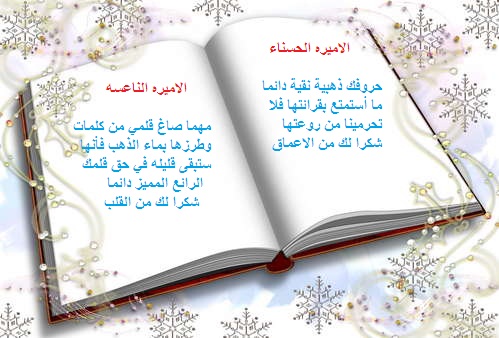 الاميره الحسناء
حروفك ذهبية نقية دائما
ما أستمتع بقرائتها فلا
تحرمينا من روعتها
شكرا لك من الاعماق
الاميره الناعسه
مهما صاغ قلمي من كلمات
وطرزها بماء الذهب فأنها
ستبقى قليله في حق قلمك
الرائع المميز دائما
شكرا لك من القلب